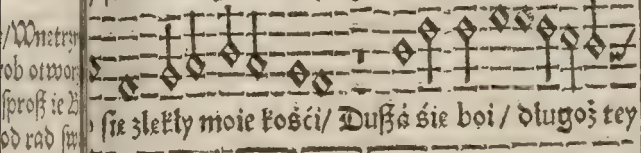 /Wnetrz
rob otwor
sproß ie
od rad sw
śie zlekły moie kośći/ Dußá śie boi/ długoż tey